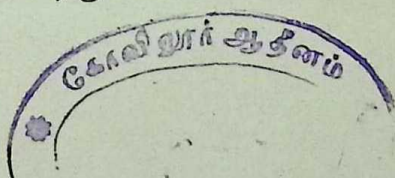 கோவிலூர் ஆதீனம்